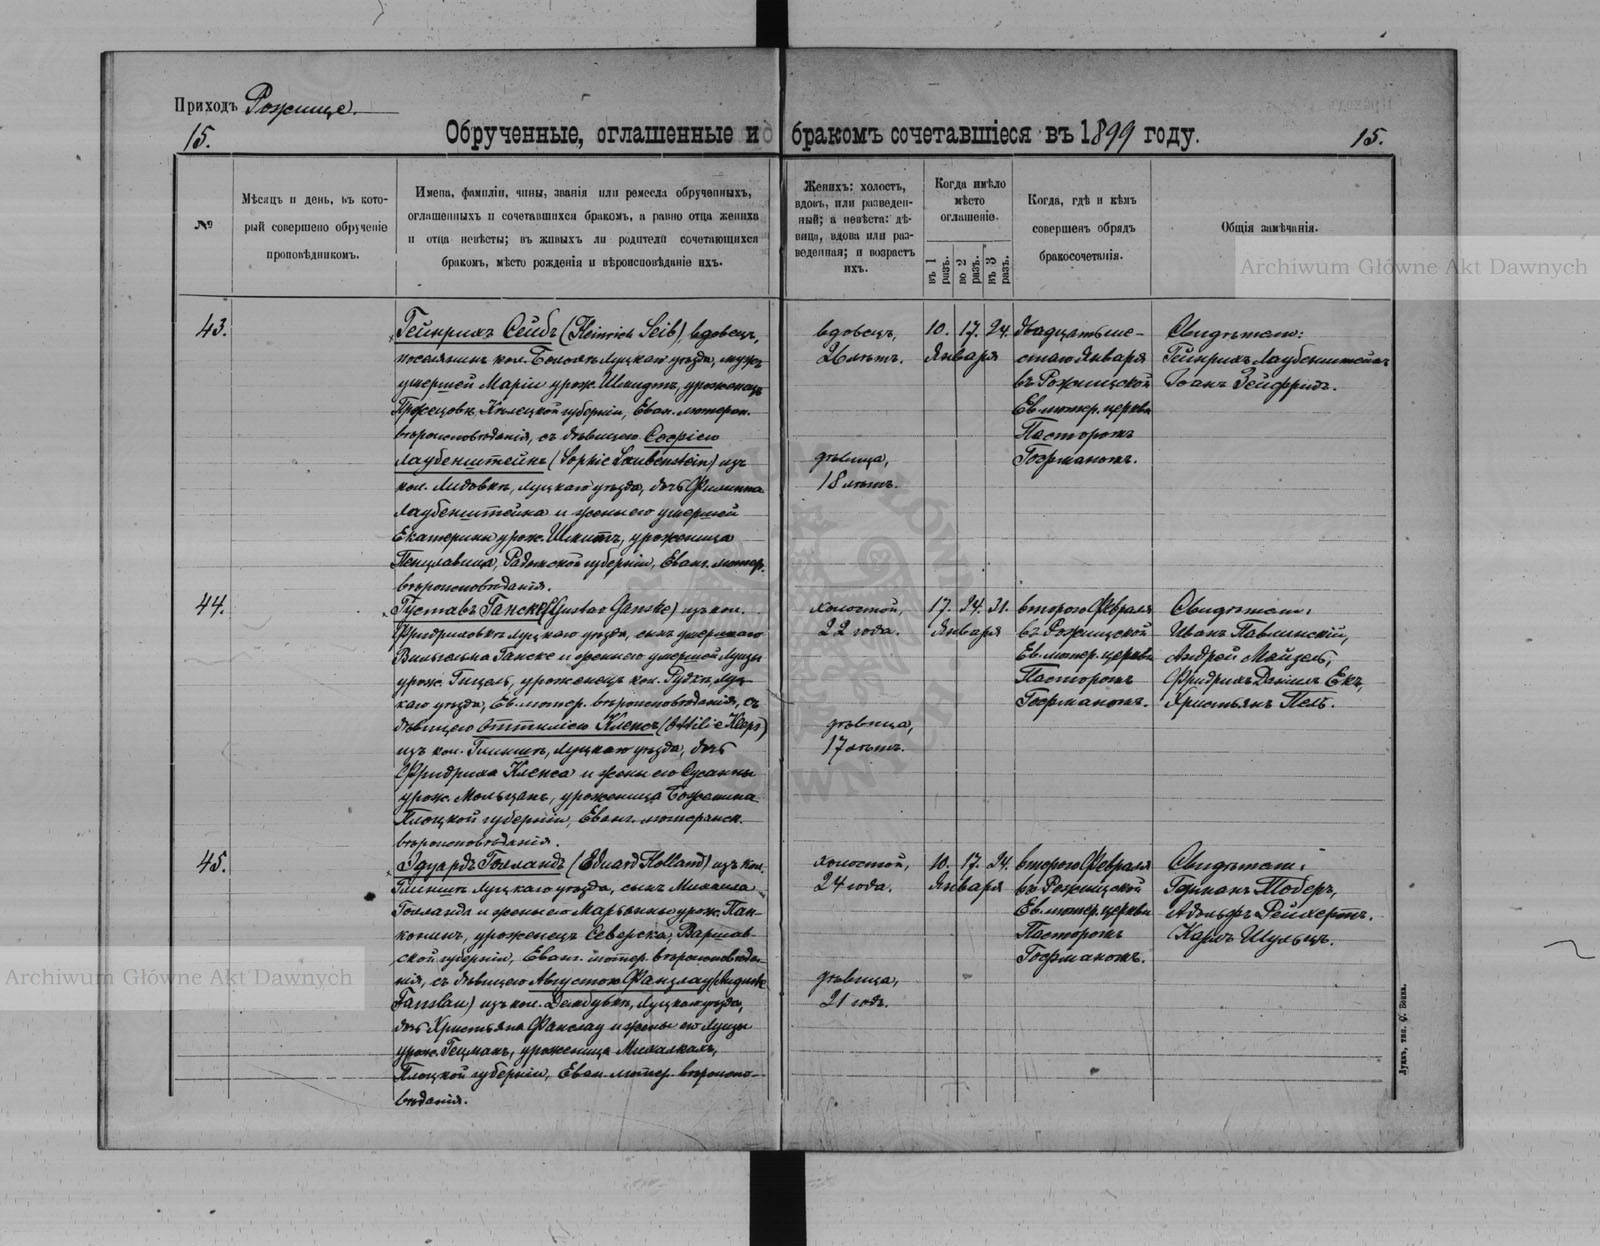 Приходъ Рожище.
15.
Обрученные, оглашенные и бракомъ сочетавшіеся въ 1899 году.
15.
№
Мѣсяцъ и день, въ кото-
рый совершено обрученіе
проповѣдникомъ.
Имена, фамиліи, чины, званія или ремесла обрученныхъ,
оглашенныхъ и сочетавшихся бракомъ, а равно отца жениха
и отца невѣсты; въ живыхъ ли родители сочетающихся
бракомъ, мѣсто рожденія и вѣроисповѣданіе ихъ.
Женихъ: холостъ,
вдовъ, или разведен-
ный; а невѣста: дѣ-
вица, вдова или раз-
веденная; и возрастъ
ихъ.
Когда имѣло
мѣсто
оглашеніе.
въ 1 разъ.
во 2 разъ.
въ 3 разъ.
Когда, гдѣ и кѣмъ
совершенъ обрядъ
бракосочетанія.
Общія замѣчанія.
Archiwum Główne Akt Dawnych
43.
Гейнрихъ Сейбъ (Heinrich Seib), вдовецъ,
поселянинъ кол. Луцкаго уѣзда, мужъ
умершей Маріи урож. Шмидтъ, уроженецъ
Кѣлецкой губерніи, Еван. лютеран.
вѣроисповѣданія, съ дѣвицею Софіею
Лаубенштейнъ (Sophie Laubenstein) изъ
кол. Лидовкѣ, Луцкаго уѣзда, дочь Филиппа
Лаубенштейна и жены его умершей
Екатерины урож. Шмитъ, уроженица
Радомской губерніи, Еванг. лютер.
вѣроисповѣданія.
вдовецъ,
26 лѣтъ.
дѣвица,
18 лѣтъ.
10. 17. 24.
Января
двадцать ше-
стаго Января
въ Рожищской
Ев. лютер. церкви
Пасторомъ
Гофманомъ.
Свидѣтели:
Гейнрихъ Лаубенштейнъ
Іоанъ Зейфридъ.
44.
Густавъ Ганске (Gustav Ganske) изъ кол.
Фридриховкѣ Луцкаго уѣзда, сынъ умершаго
Вильгельма Ганске и жены его умершей Луизы
урож. Гицель, уроженецъ кол. Луц-
каго уѣзда, Ев. лютер. вѣроисповѣданія, съ
дѣвицею Оттиліею Кленсъ (Ottilie)
изъ кол. Луцкаго уѣзда, дочь
Фридриха Кленса и жены его Сусанны
урож. Мольцанъ, уроженица
Плоцкой губерніи, Еванг. лютеранск.
вѣроисповѣданія.
холостой,
22 года.
дѣвица,
17 лѣтъ.
17. 24. 31.
Января
втораго Февраля
въ Рожищской
Ев. лютер. церкви
Пасторомъ
Гофманомъ.
Свидѣтели:
Иванъ Павлинскій,
Андрей Майзель,
Фридрихъ Даніилъ Екъ,
Христьянъ Пель.
45.
Эдуардъ Голландъ (Eduard Holland) изъ кол.
Луцкаго уѣзда, сынъ Михаила
Голланда и жены его Марьянны урож. Пан-
конинъ, уроженецъ Северска, Варшав-
ской губерніи, Еванг. лютер. вѣроисповѣда-
нія, съ дѣвицею Августою Фанцлау (Auguste
Fanslau) изъ кол. Дембувкѣ, Луцкаго уѣзда,
дочь Христьяна Фанслау и жены его Луизы
урож. Гецманъ, уроженица Михалкахъ,
Плоцкой губерніи, Еван. лютер. вѣроиспо-
вѣданія.
холостой,
24 года.
дѣвица,
21 годъ.
10. 17. 24.
Января
втораго Февраля
въ Рожищской
Ев. лютер. церкви
Пасторомъ
Гофманомъ.
Свидѣтели:
Германъ Тоберъ,
Адольфъ Рейхертъ.
Карлъ Шульцъ.
Archiwum Główne Akt Dawnych